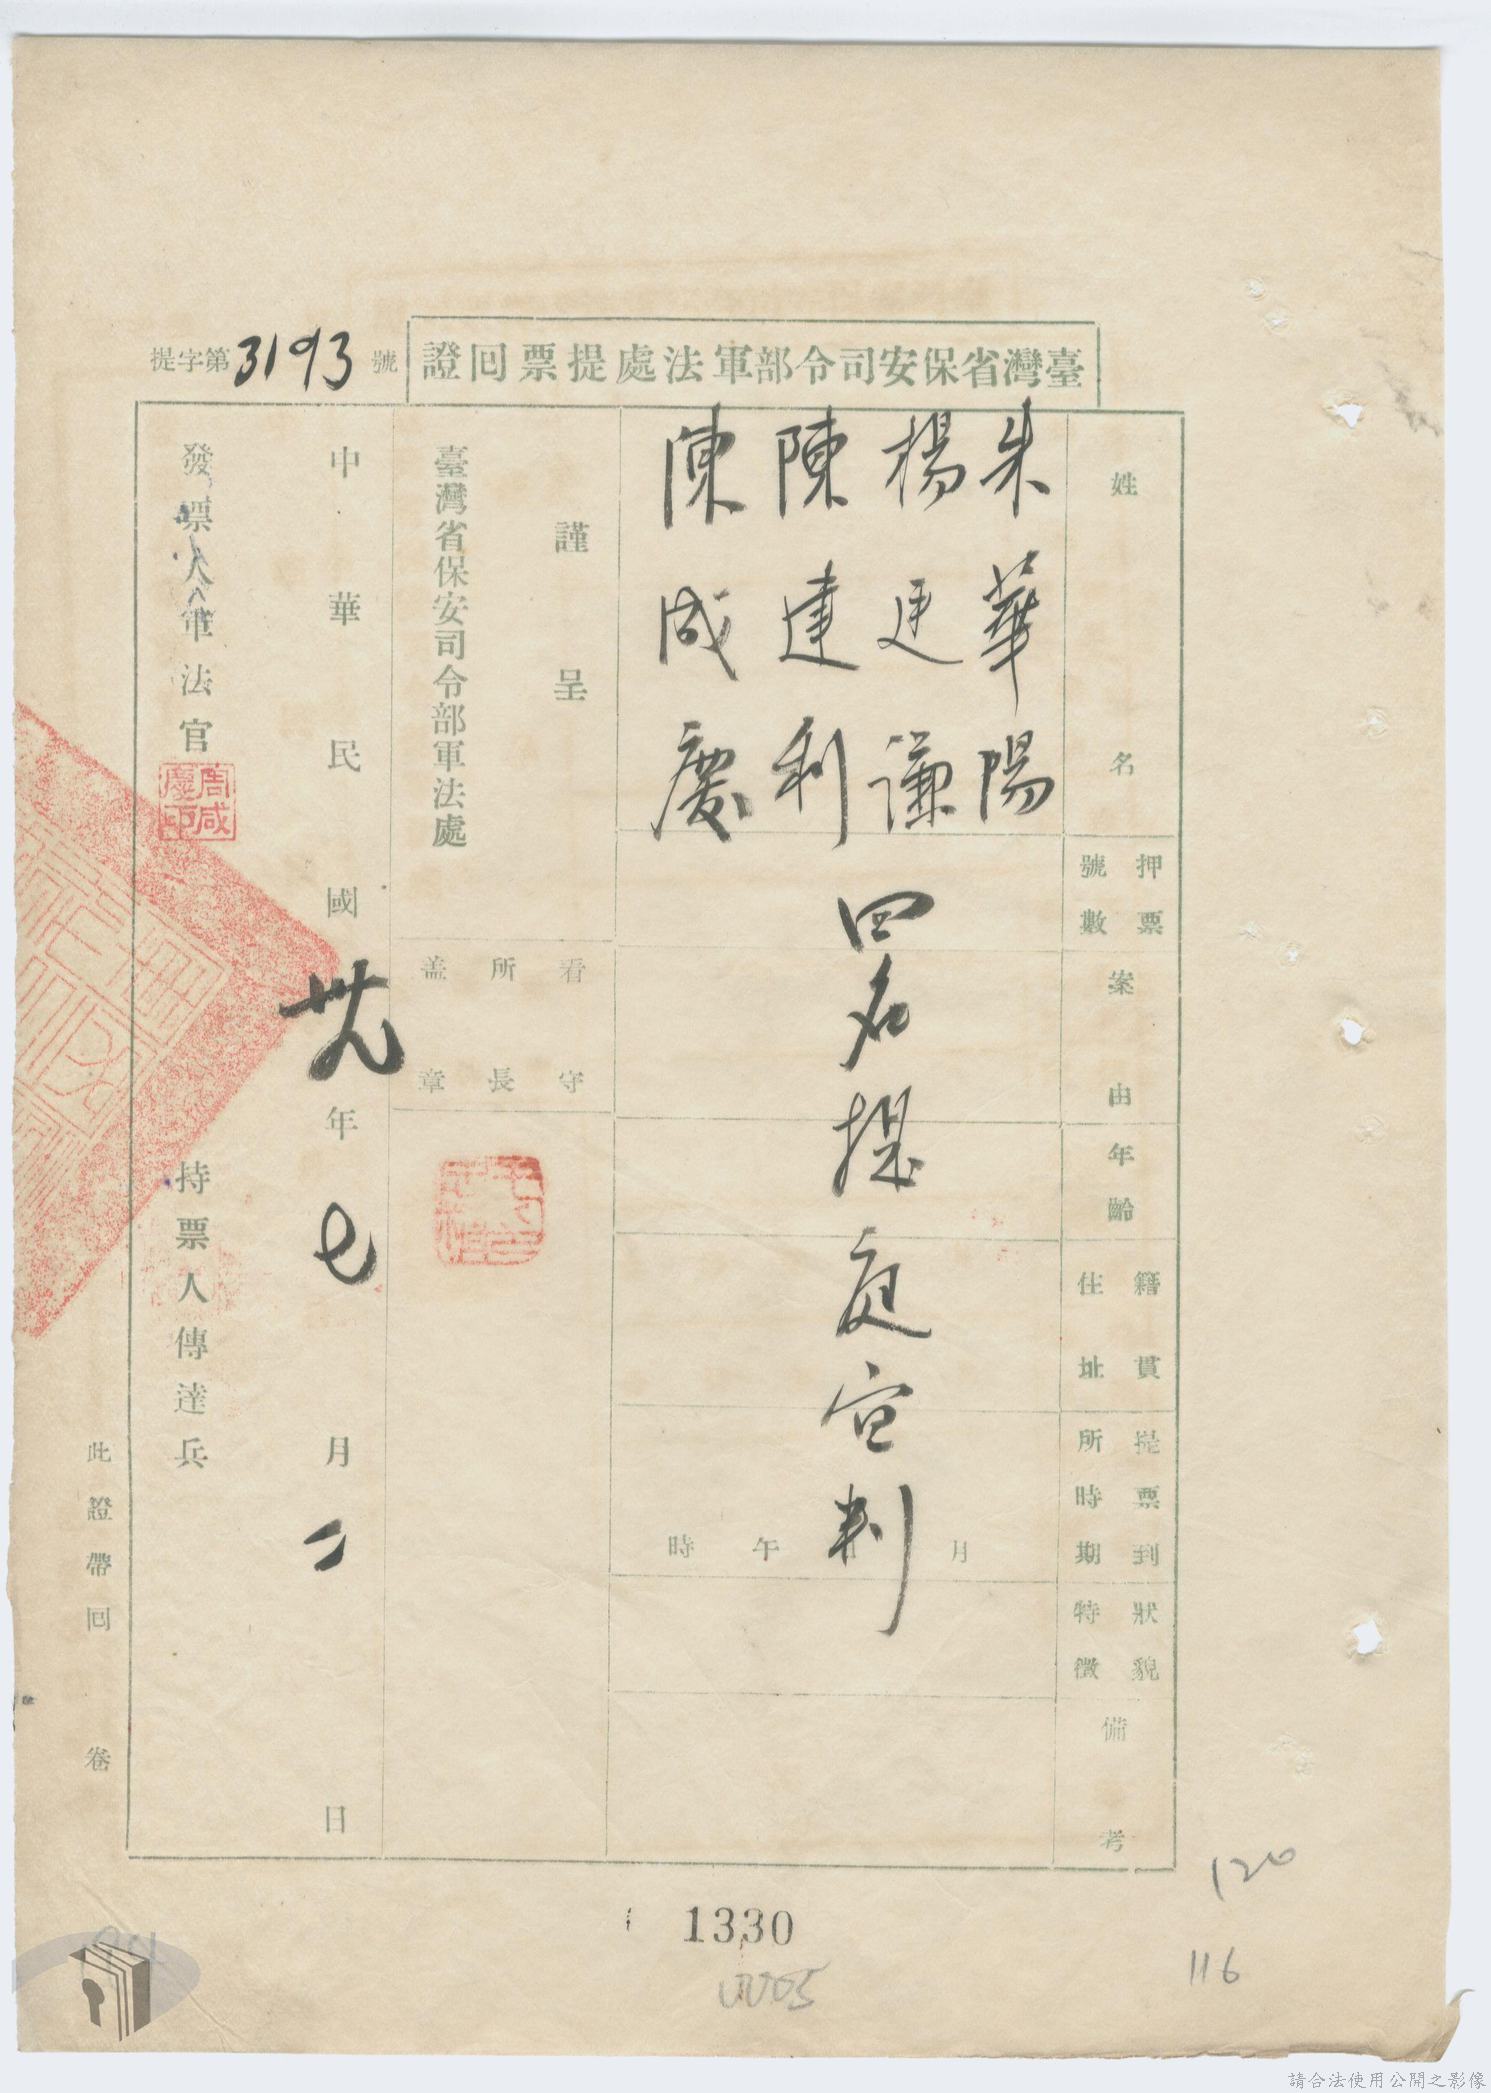 臺灣省保安司令部軍法處提票回證
提字第3193號
姓名
押票號數
案由
年齡
籍貫住址
提票到所時期
狀貌特徵
備考
朱華陽
楊廷謙
陳達利
陳咸慶
四名提庭宣判
月 午 時
謹呈
臺灣省保安司令部軍法處
看守所長蓋章
中華民國卅九年七月二日
發票人軍法官
周咸慶印
持票人傳達兵
此證帶回 卷
1330
120
116
請合法使用公開之影像